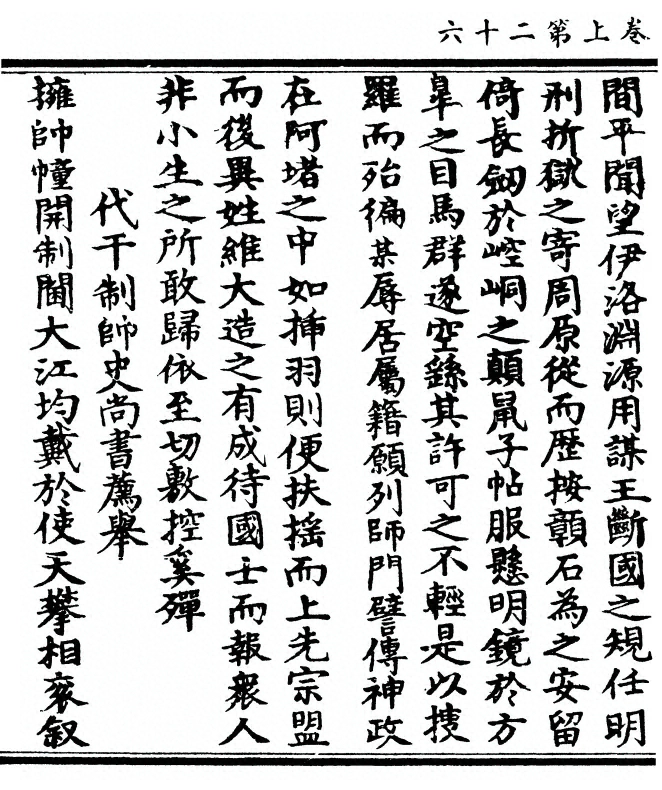 卷上第二十六
間平聞望伊洛淵源用謀王斷國之規任明
刑折獄之寄周原從而歷按顛石為之安留
倚長劒於崆峒之顛鼠子帖服懸明鏡於方
臯之目馬群遂空繇其許可之不輕是以搜
羅而殆徧某辱居屬籍願列師門譬傳神政
在阿堵之中如揷羽則便扶搖而上先宗盟
而後異姓維大造之有成待國士而報衆人
非小生之所敢歸依至切敷控奚殫
代干制帥史尚書薦舉
擁帥幢開制閫大江均戴於使天攀相衮叙